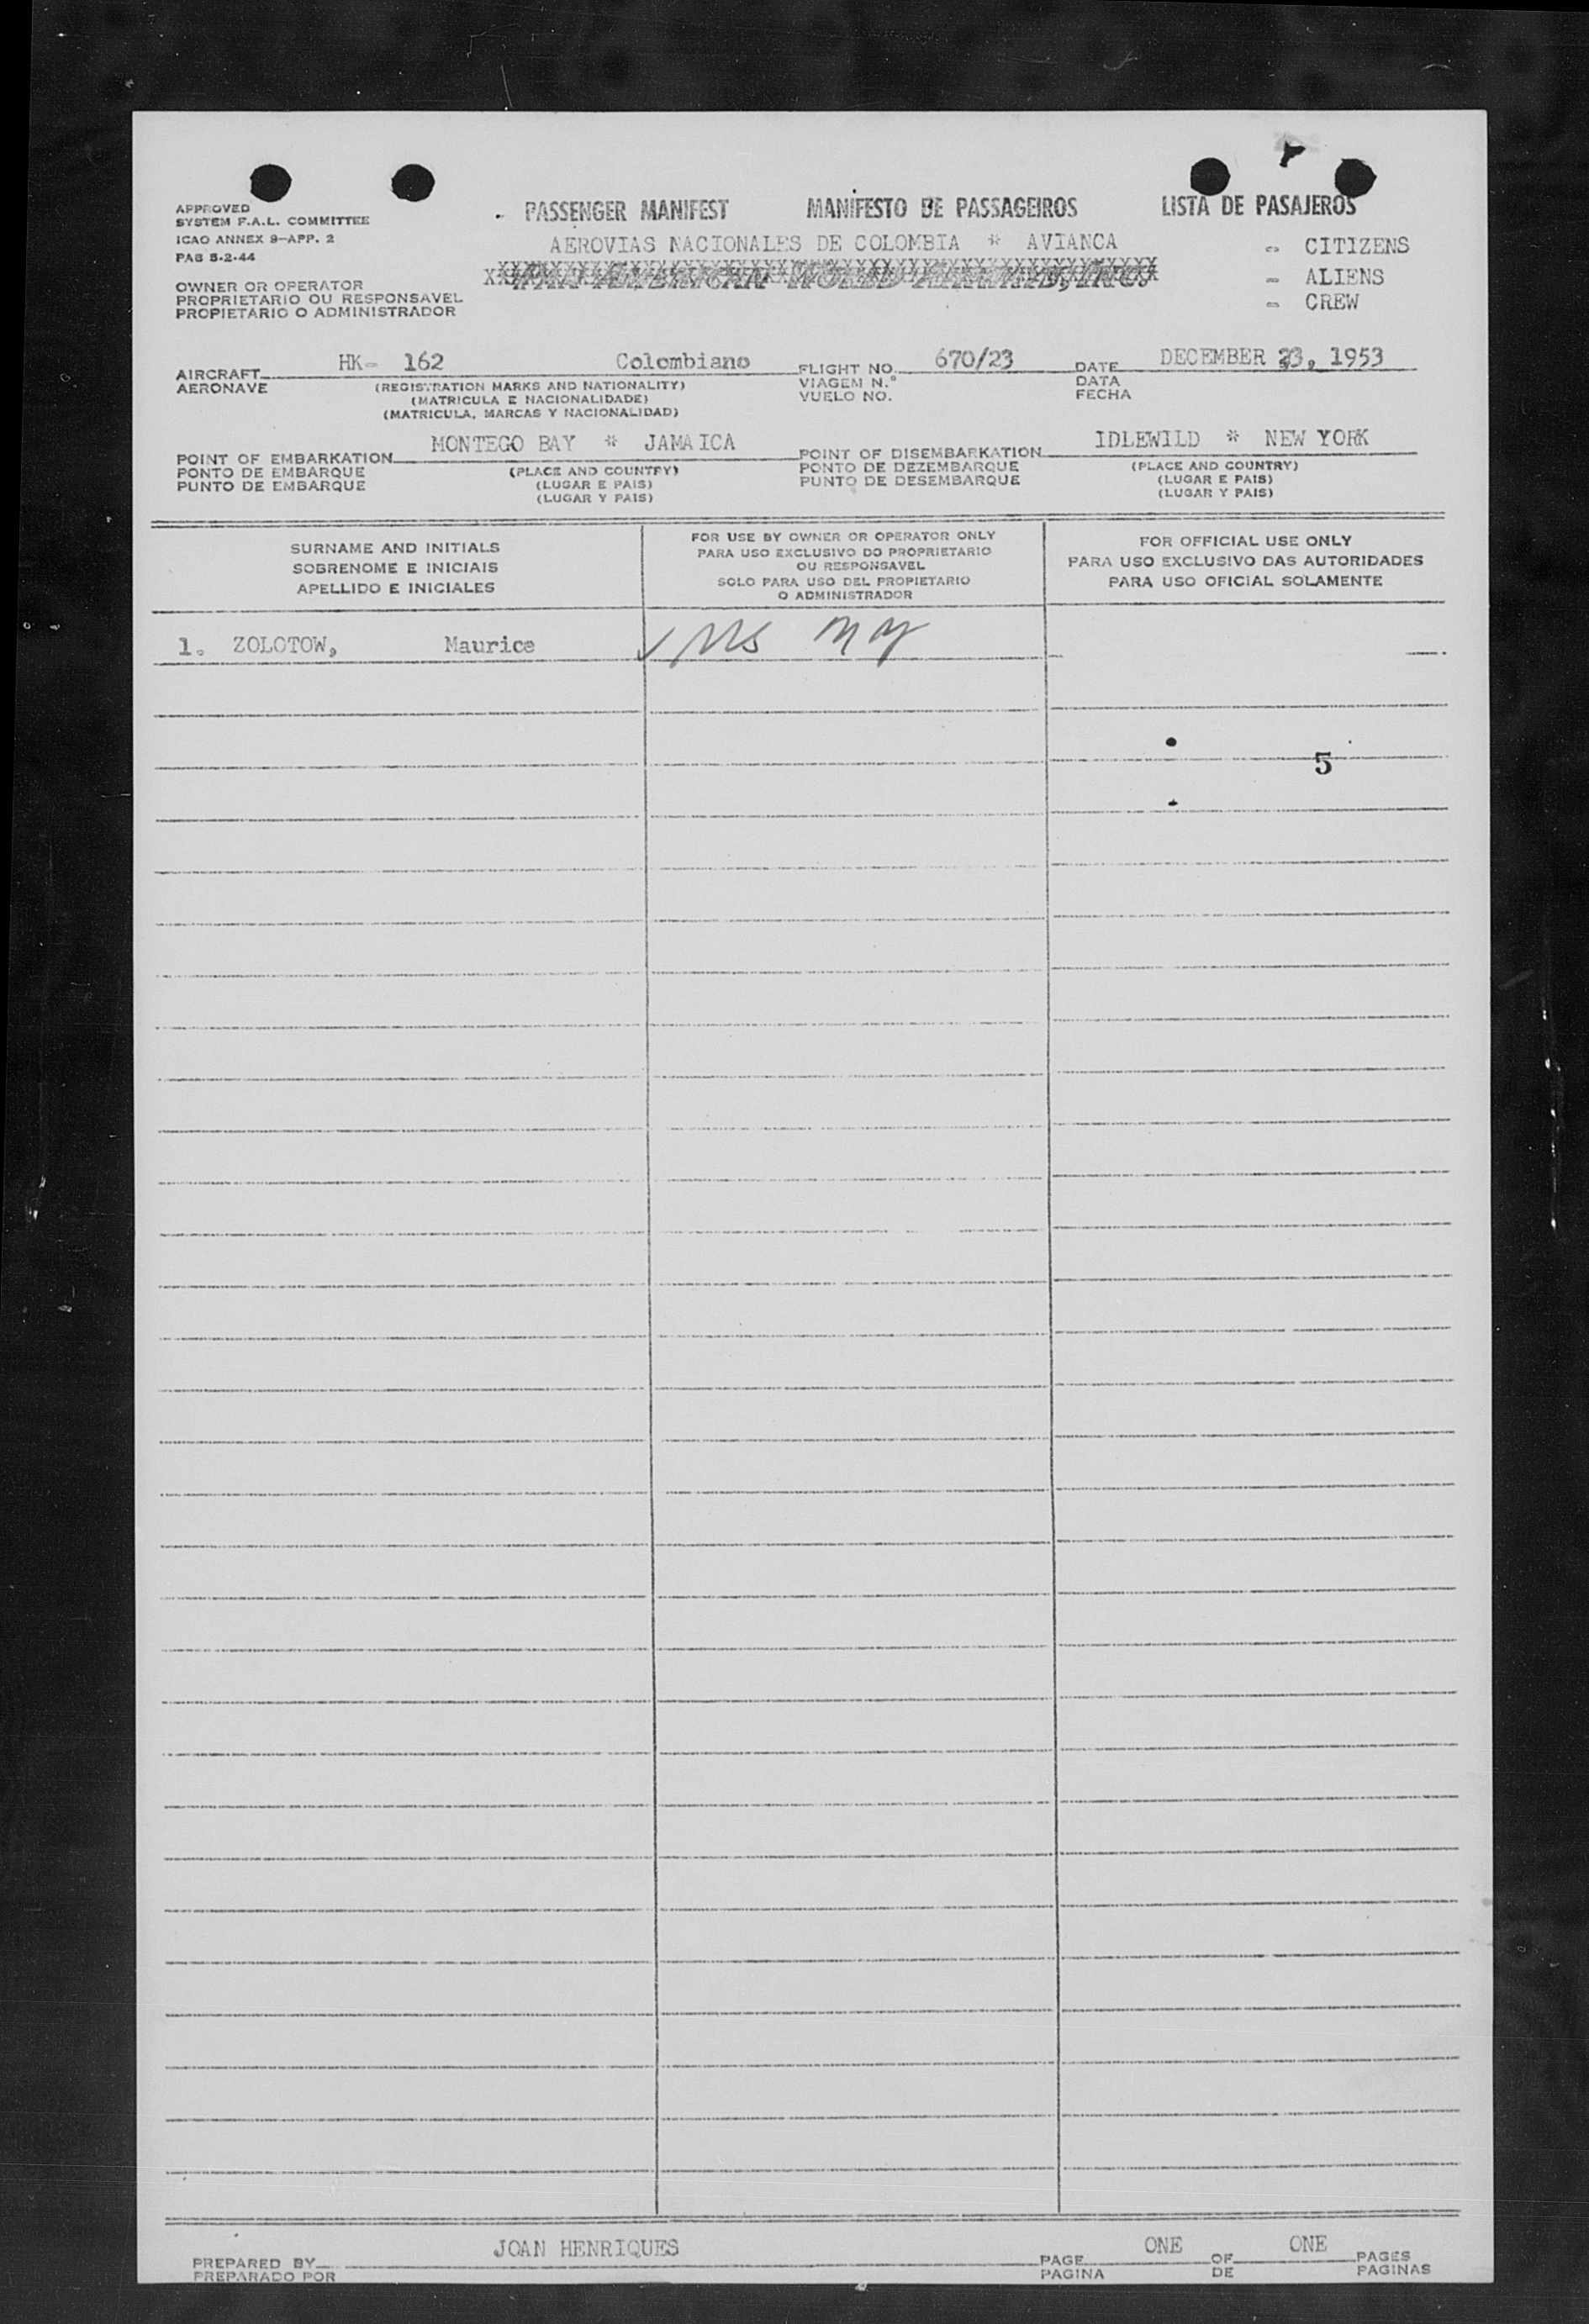 APPROVED
SYSTEM F.A.L. COMMITTEE
ICAO ANNEX 9-APP. 2
PAB 5-2-44
PASSENGER MANIFEST MANIFESTO DE PASSAGEIROS LISTA DE PASAJEROS
AEROVIAS NACIONALES DE COLOMBIA * AVIANCA
PAN AMERICAN WORLD AIRWAYS, INC.
- CITIZENS
- ALIENS
- CREW
OWNER OR OPERATOR
PROPRIETARIO OU RESPONSAVEL
PROPIETARIO O ADMINISTRADOR
AIRCRAFT HK- 162 Colombiano FLIGHT NO. 670/23 DATE DECEMBER 23, 1953
AERONAVE (REGISTRATION MARKS AND NATIONALITY) VIAGEM N.º DATA
(MATRICULA E NACIONALIDADE) VUELO NO. FECHA
(MATRICULA, MARCAS Y NACIONALIDAD)
POINT OF EMBARKATION MONTEGO BAY * JAMAICA POINT OF DISEMBARKATION IDLEWILD * NEW YORK
PONTO DE EMBARQUE (PLACE AND COUNTRY) PONTO DE DEZEMBARQUE (PLACE AND COUNTRY)
PUNTO DE EMBARQUE (LUGAR E PAIS) PUNTO DE DESEMBARQUE (LUGAR E PAIS)
(LUGAR Y PAIS) (LUGAR Y PAIS)
SURNAME AND INITIALS
SOBRENOME E INICIAIS
APELLIDO E INICIALES
FOR USE BY OWNER OR OPERATOR ONLY
PARA USO EXCLUSIVO DO PROPRIETARIO
OU RESPONSAVEL
SOLO PARA USO DEL PROPIETARIO
O ADMINISTRADOR
FOR OFFICIAL USE ONLY
PARA USO EXCLUSIVO DAS AUTORIDADES
PARA USO OFICIAL SOLAMENTE
1. ZOLOTOW, Maurice
5
PREPARED BY JOAN HENRIQUES PAGE ONE OF ONE PAGES
PREPARADO POR PAGINA DE PAGINAS